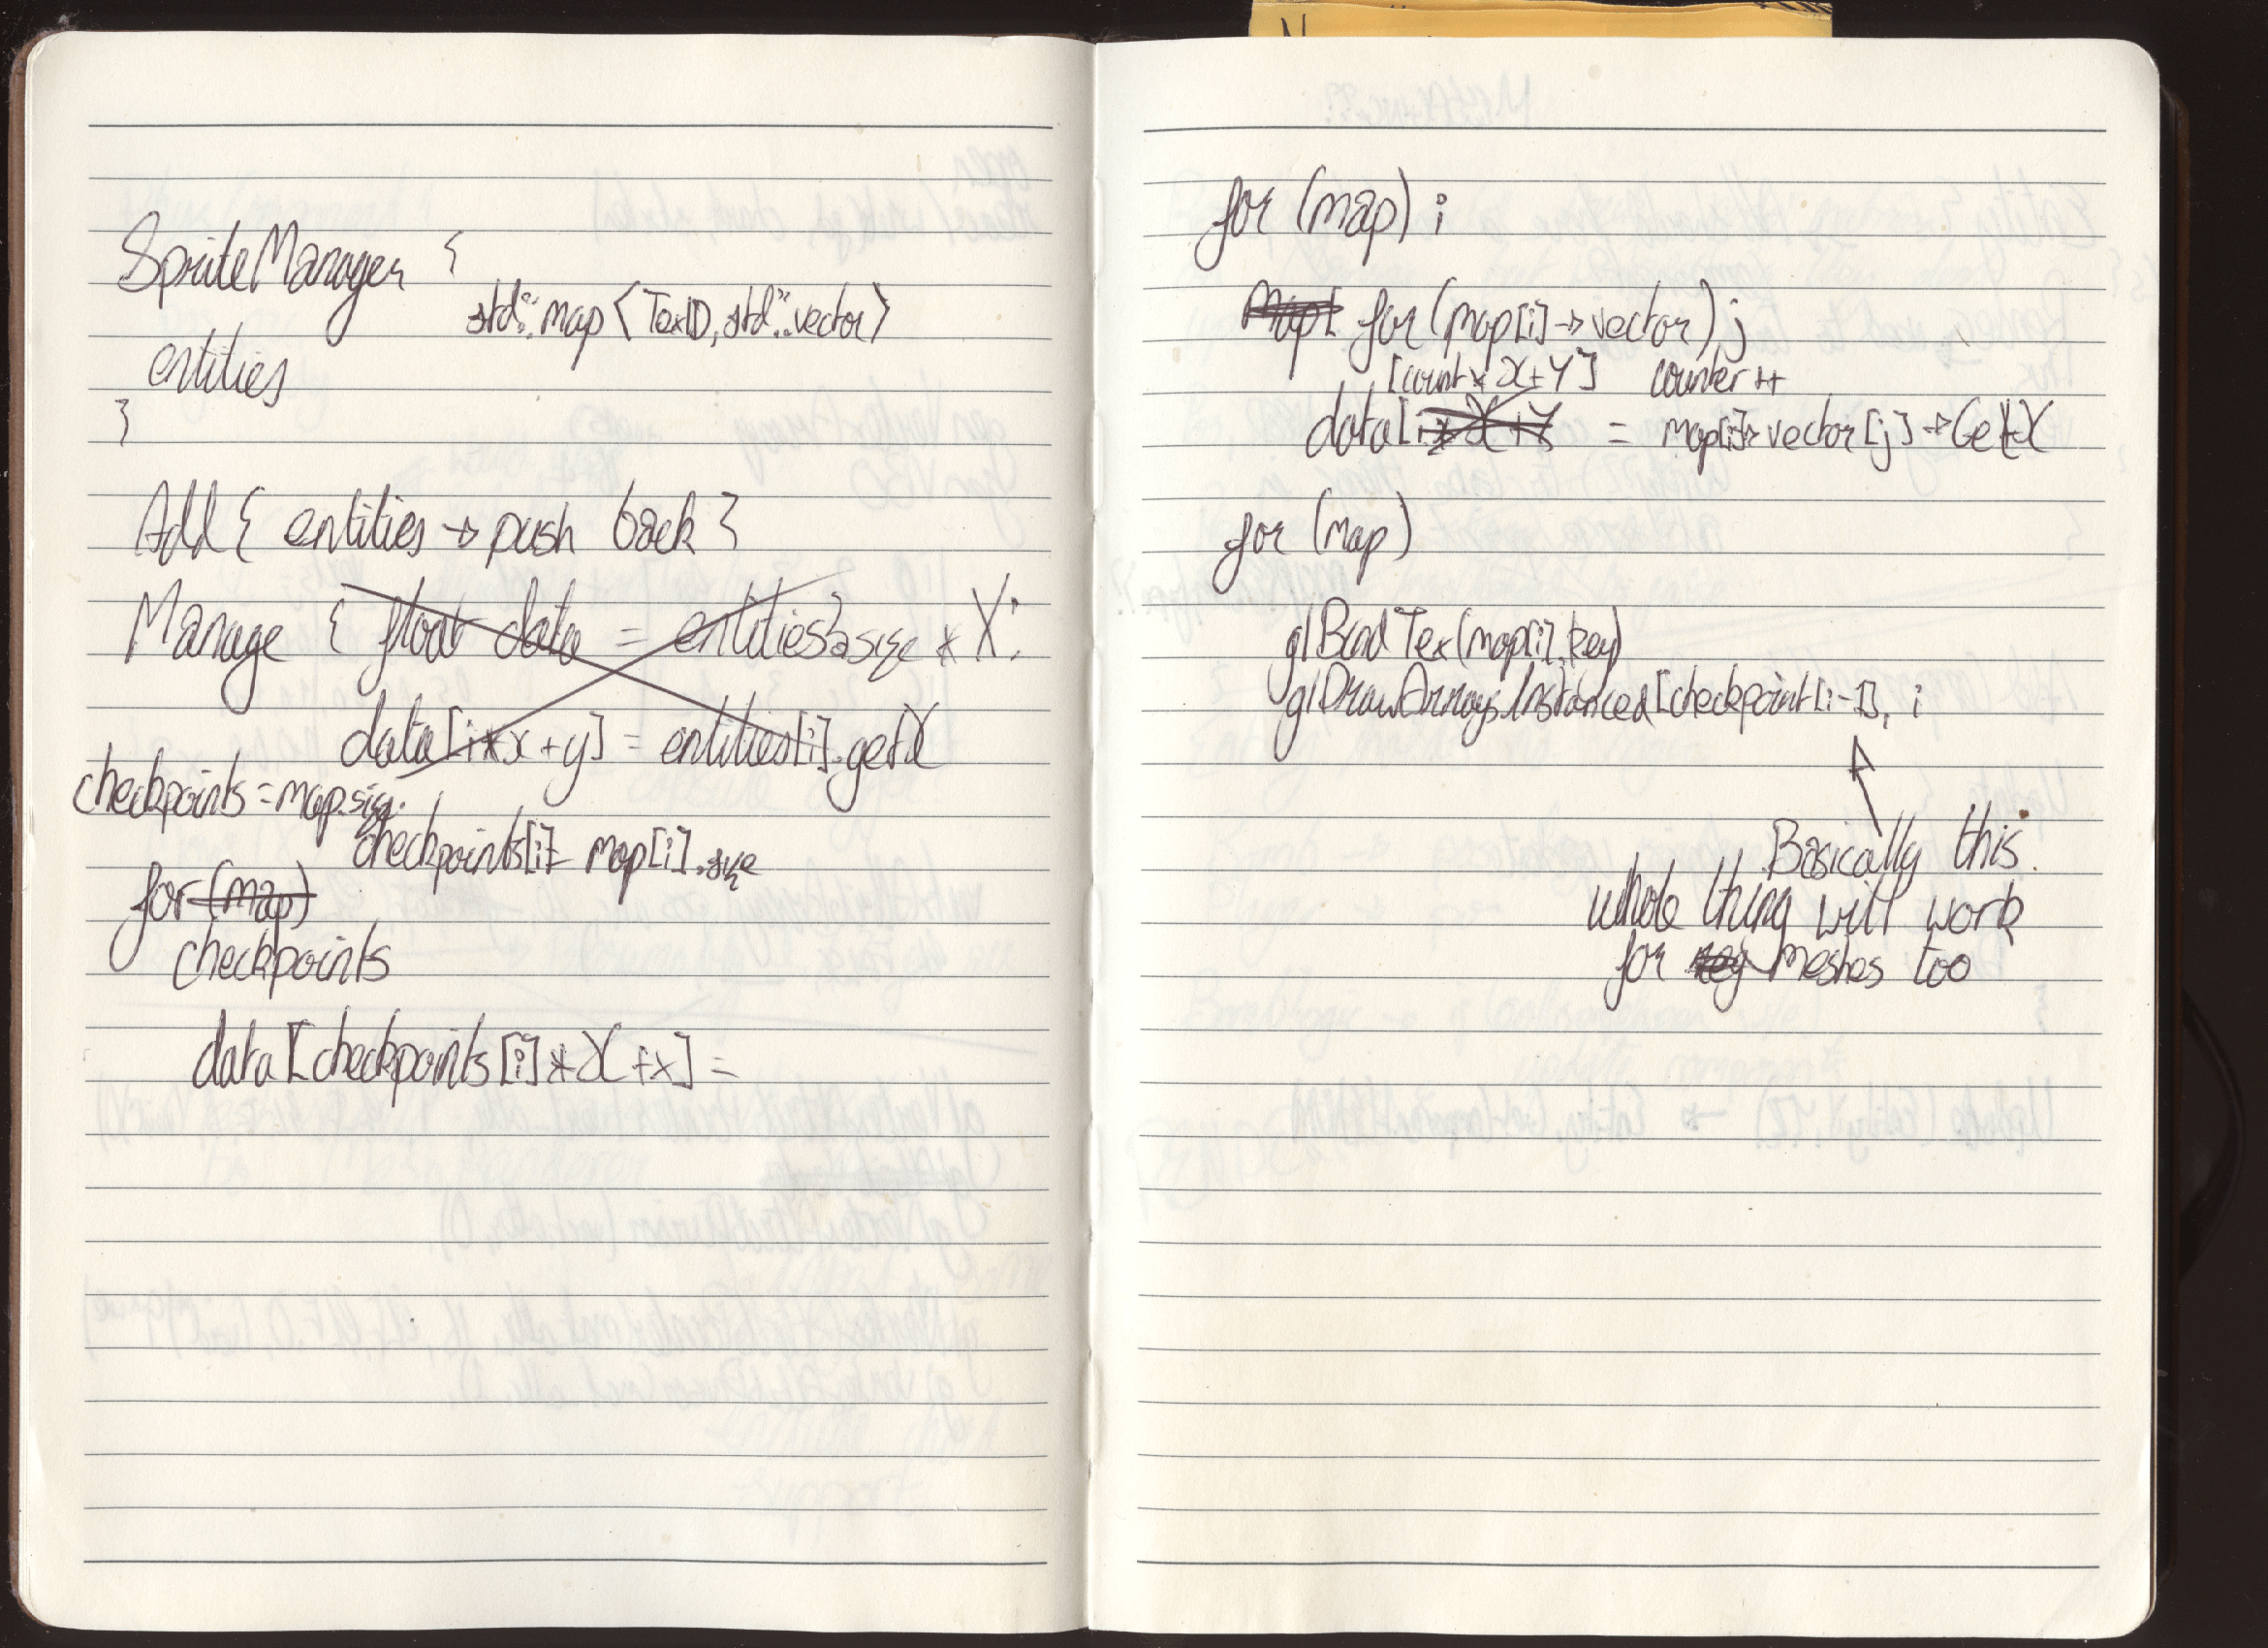 SpriteManager {
std::map <TexID, std::vector>
entities
}
Add { entities → push back }
Manage { float data = entities.size * X;
data[i*x+y] = entities[i].getX
checkpoints = map.size.
checkpoints[i] = map[i].size
for (map)
checkpoints
data [checkpoints[i]*X+x] =
for (map) i
map[ for (map[i]→vector) j
[count * X+Y] counter ++
data[i*X+Y = map[i]→vector[j]→GetX
for (map)
glBindTex(map[i].key)
glDrawArraysInstanced[checkpoint[i-1], i
Basically this
whole thing will work
for meshes too